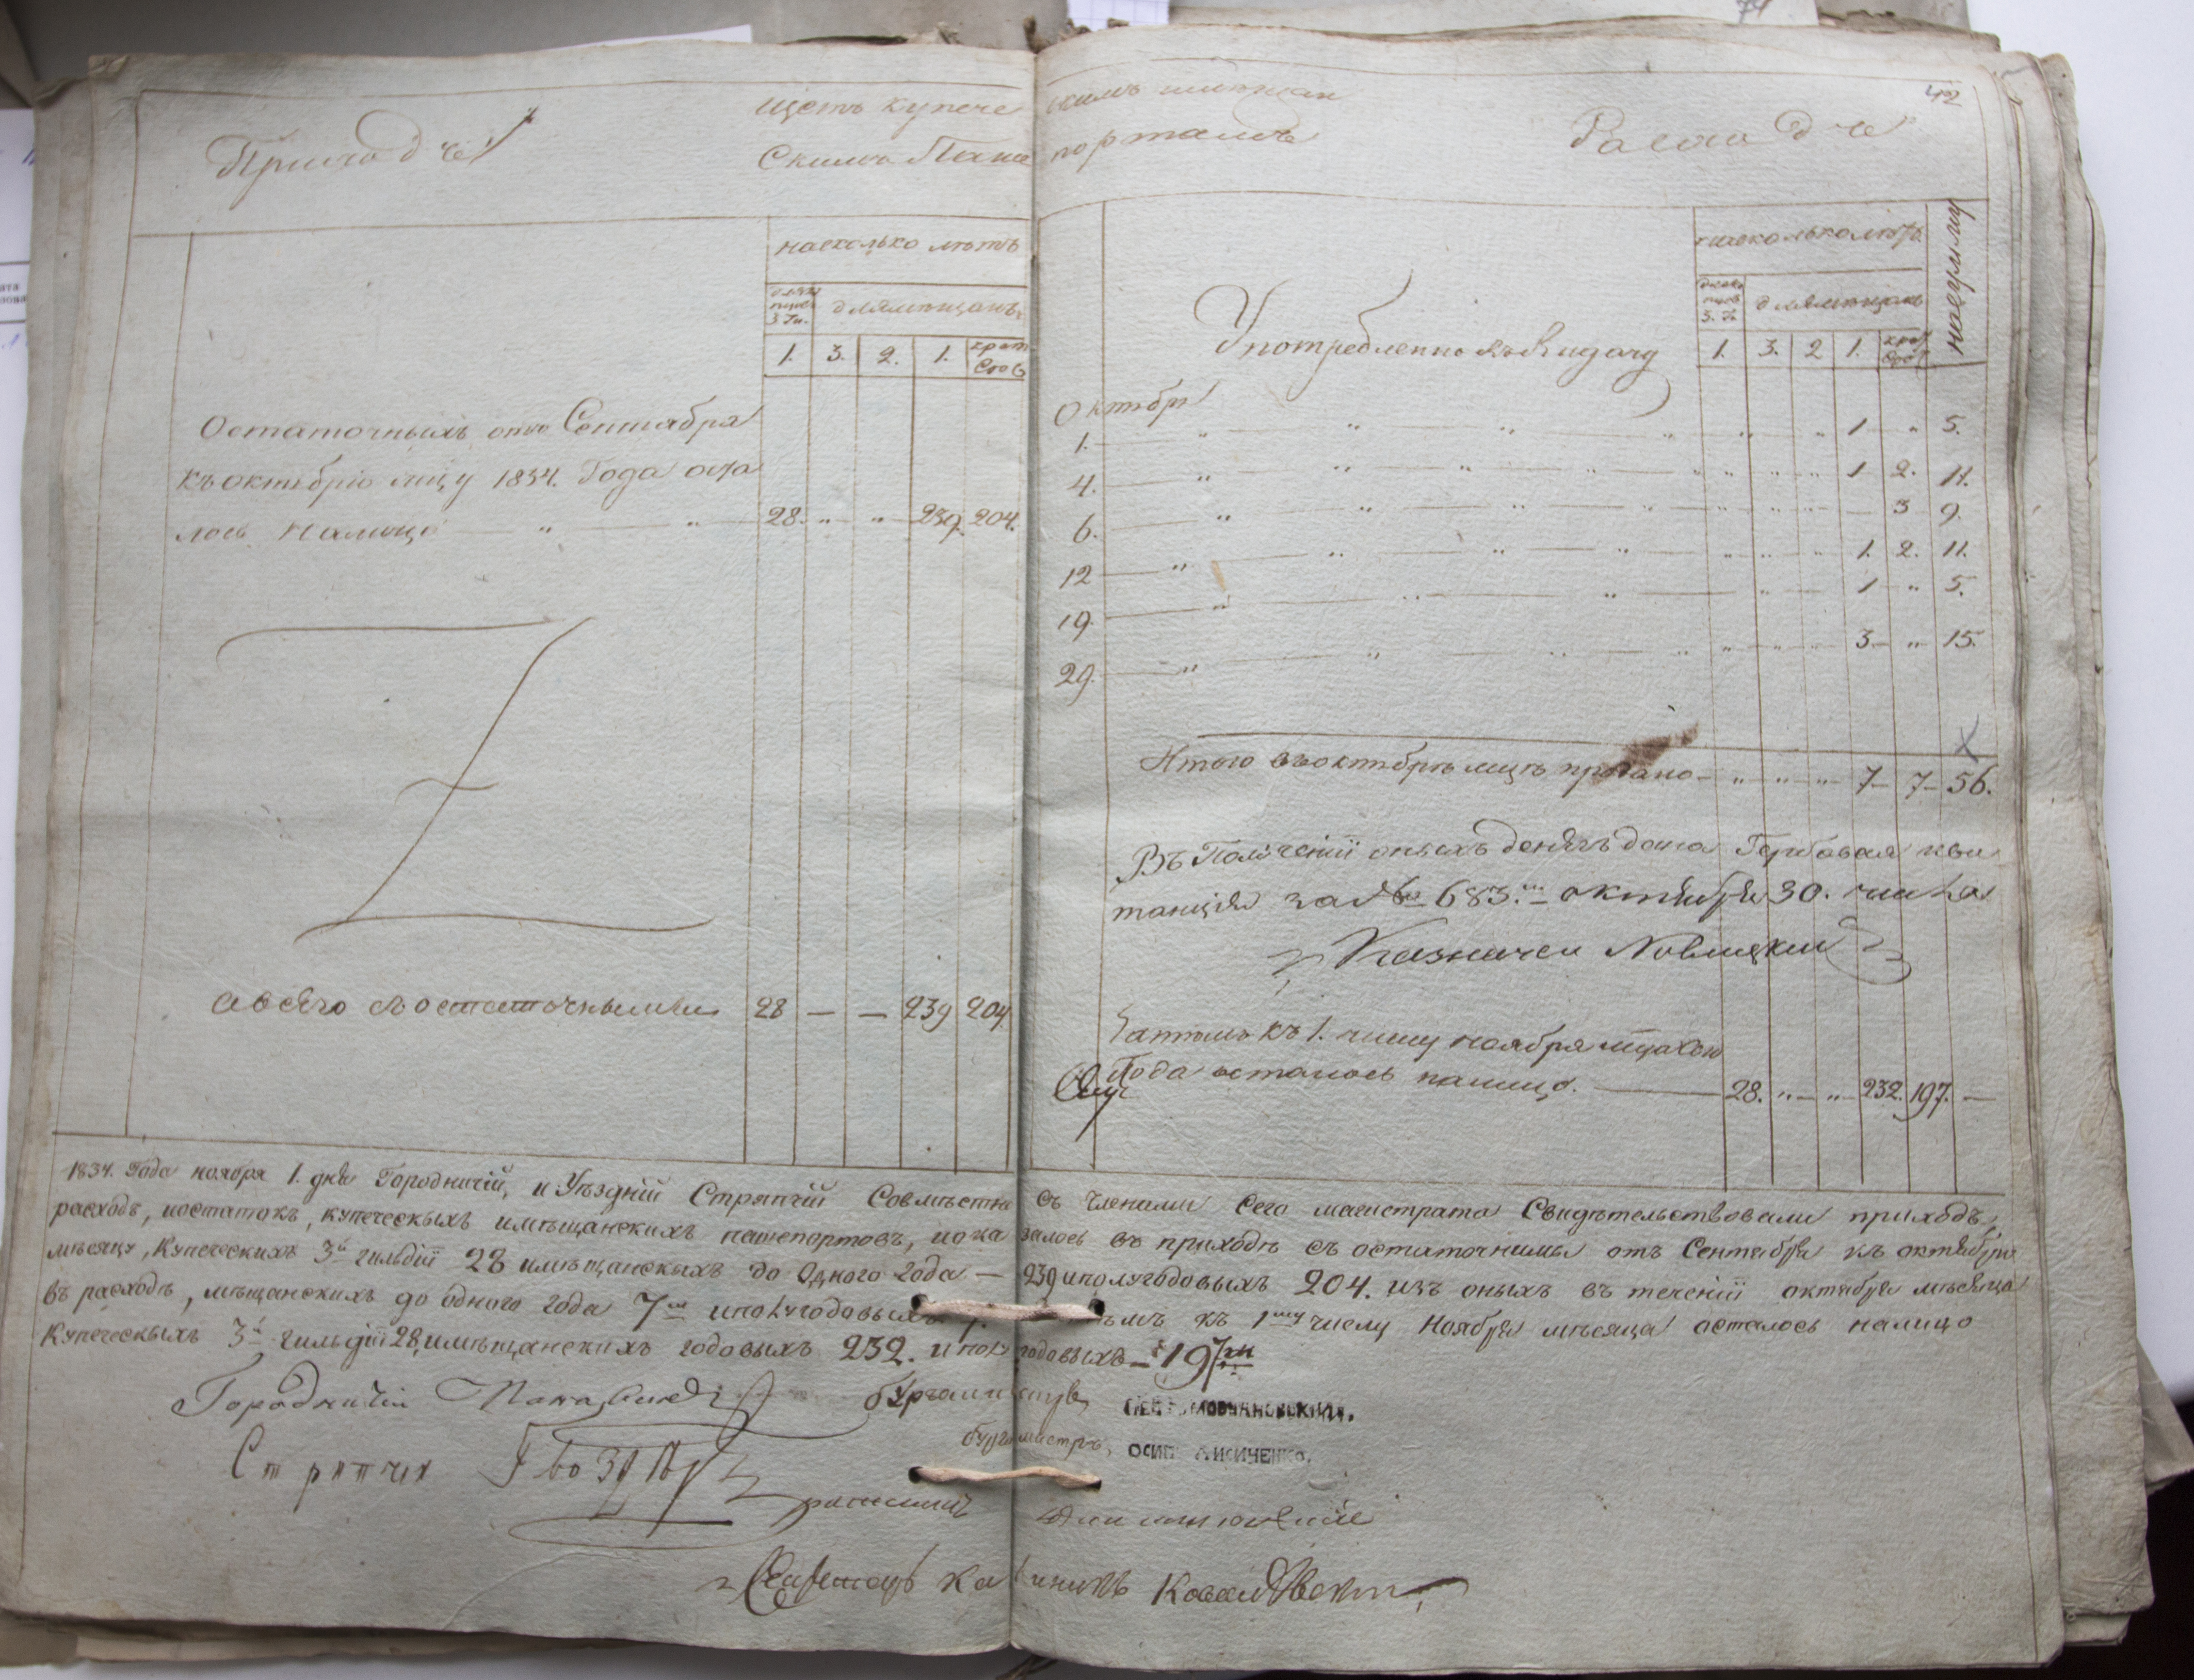 42
Приходъ
щетъ купече
скимъ имещан
скимъ Паш
портамъ
Расходъ
насколько летъ
для мещанъ
3 Ги.
1. 3. 2. 1.
Остаточныхъ отъ Сентября
къ октебрю мцу 1834. Года оста
лось Налицо 28. „ „ 239. 204.
а всего съ остаточными 28 — — 239 204
на сколько летъ
на сумму
для мещанъ
1. 3. 2 1.
Употребленно въ выдачу
Октебря
1. „ „ „ „ „ „ 1 „ 5.
4. „ „ „ „ „ „ „ 1 2. 11.
6. „ „ „ „ „ „ — 3 9.
12 „ „ „ „ „ „ „ 1. 2. 11.
19. „ „ „ „ 1 „ 5.
29. „ „ „ „ „ „ „ 3 „ 15.
Итого въ октебре мцъ продано „ „ „ 7 7 56.
Въ Полученіи оныхъ денегъ дана Гербовая кви
танція за № 683. октября 30. числа
Казначеи
Затемъ къ 1. числу ноября
Года осталось налицо. 28. „ „ 232. 197. —
1834. Года ноября 1. дня Городничій, и Уѣздній Стряпчій Совмѣстно съ членами Сего магистрата Свидѣтельствовали приходъ,
расходъ, иостатокъ, купеческыхъ имѣщанскихъ пашепортовъ, иока залось въ приходѣ съ остаточнимы отъ Сентября къ октябрю
мѣсяцу, Купеческихъ 3й гильдіи 28 имѣщанскыхъ до Одного года — 239 иполугодовыхъ 204. изъ оныхъ въ теченіи октября мѣсяца
въ расходѣ, мѣщанскихъ до одного года 7 иполугодовыхъ 7. къ 1му числу Ноября мѣсяца осталось налицо
Купеческыхъ 3й гильдіи 28, имѣщанскихъ годовыхъ 232. и полу годовыхъ — 197
Городничій бургомистръ
Стряпчи бургомистръ, ОСИПЪ ЛИСИЧЕНКО.
ратманъ